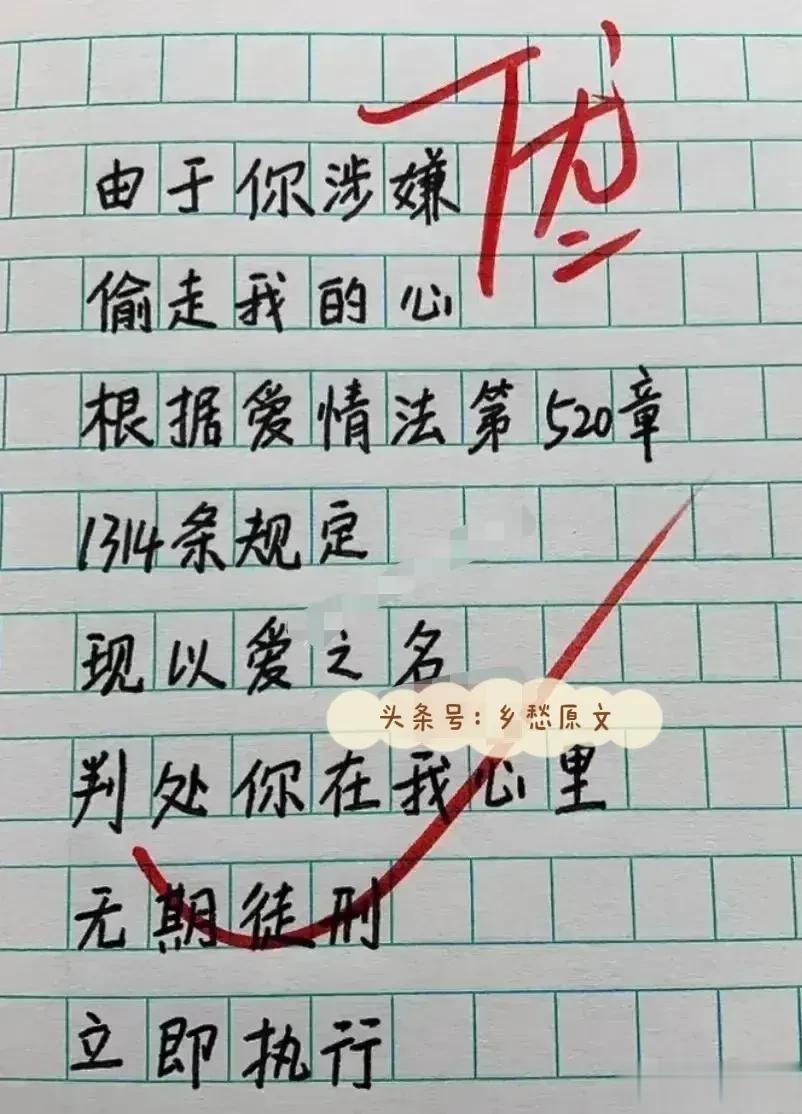 优
由于你涉嫌
偷走我的心
根据爱情法第520章
1314条规定
现以爱之名
头条号:乡愁原文
判处你在我心里
无期徒刑
立即执行